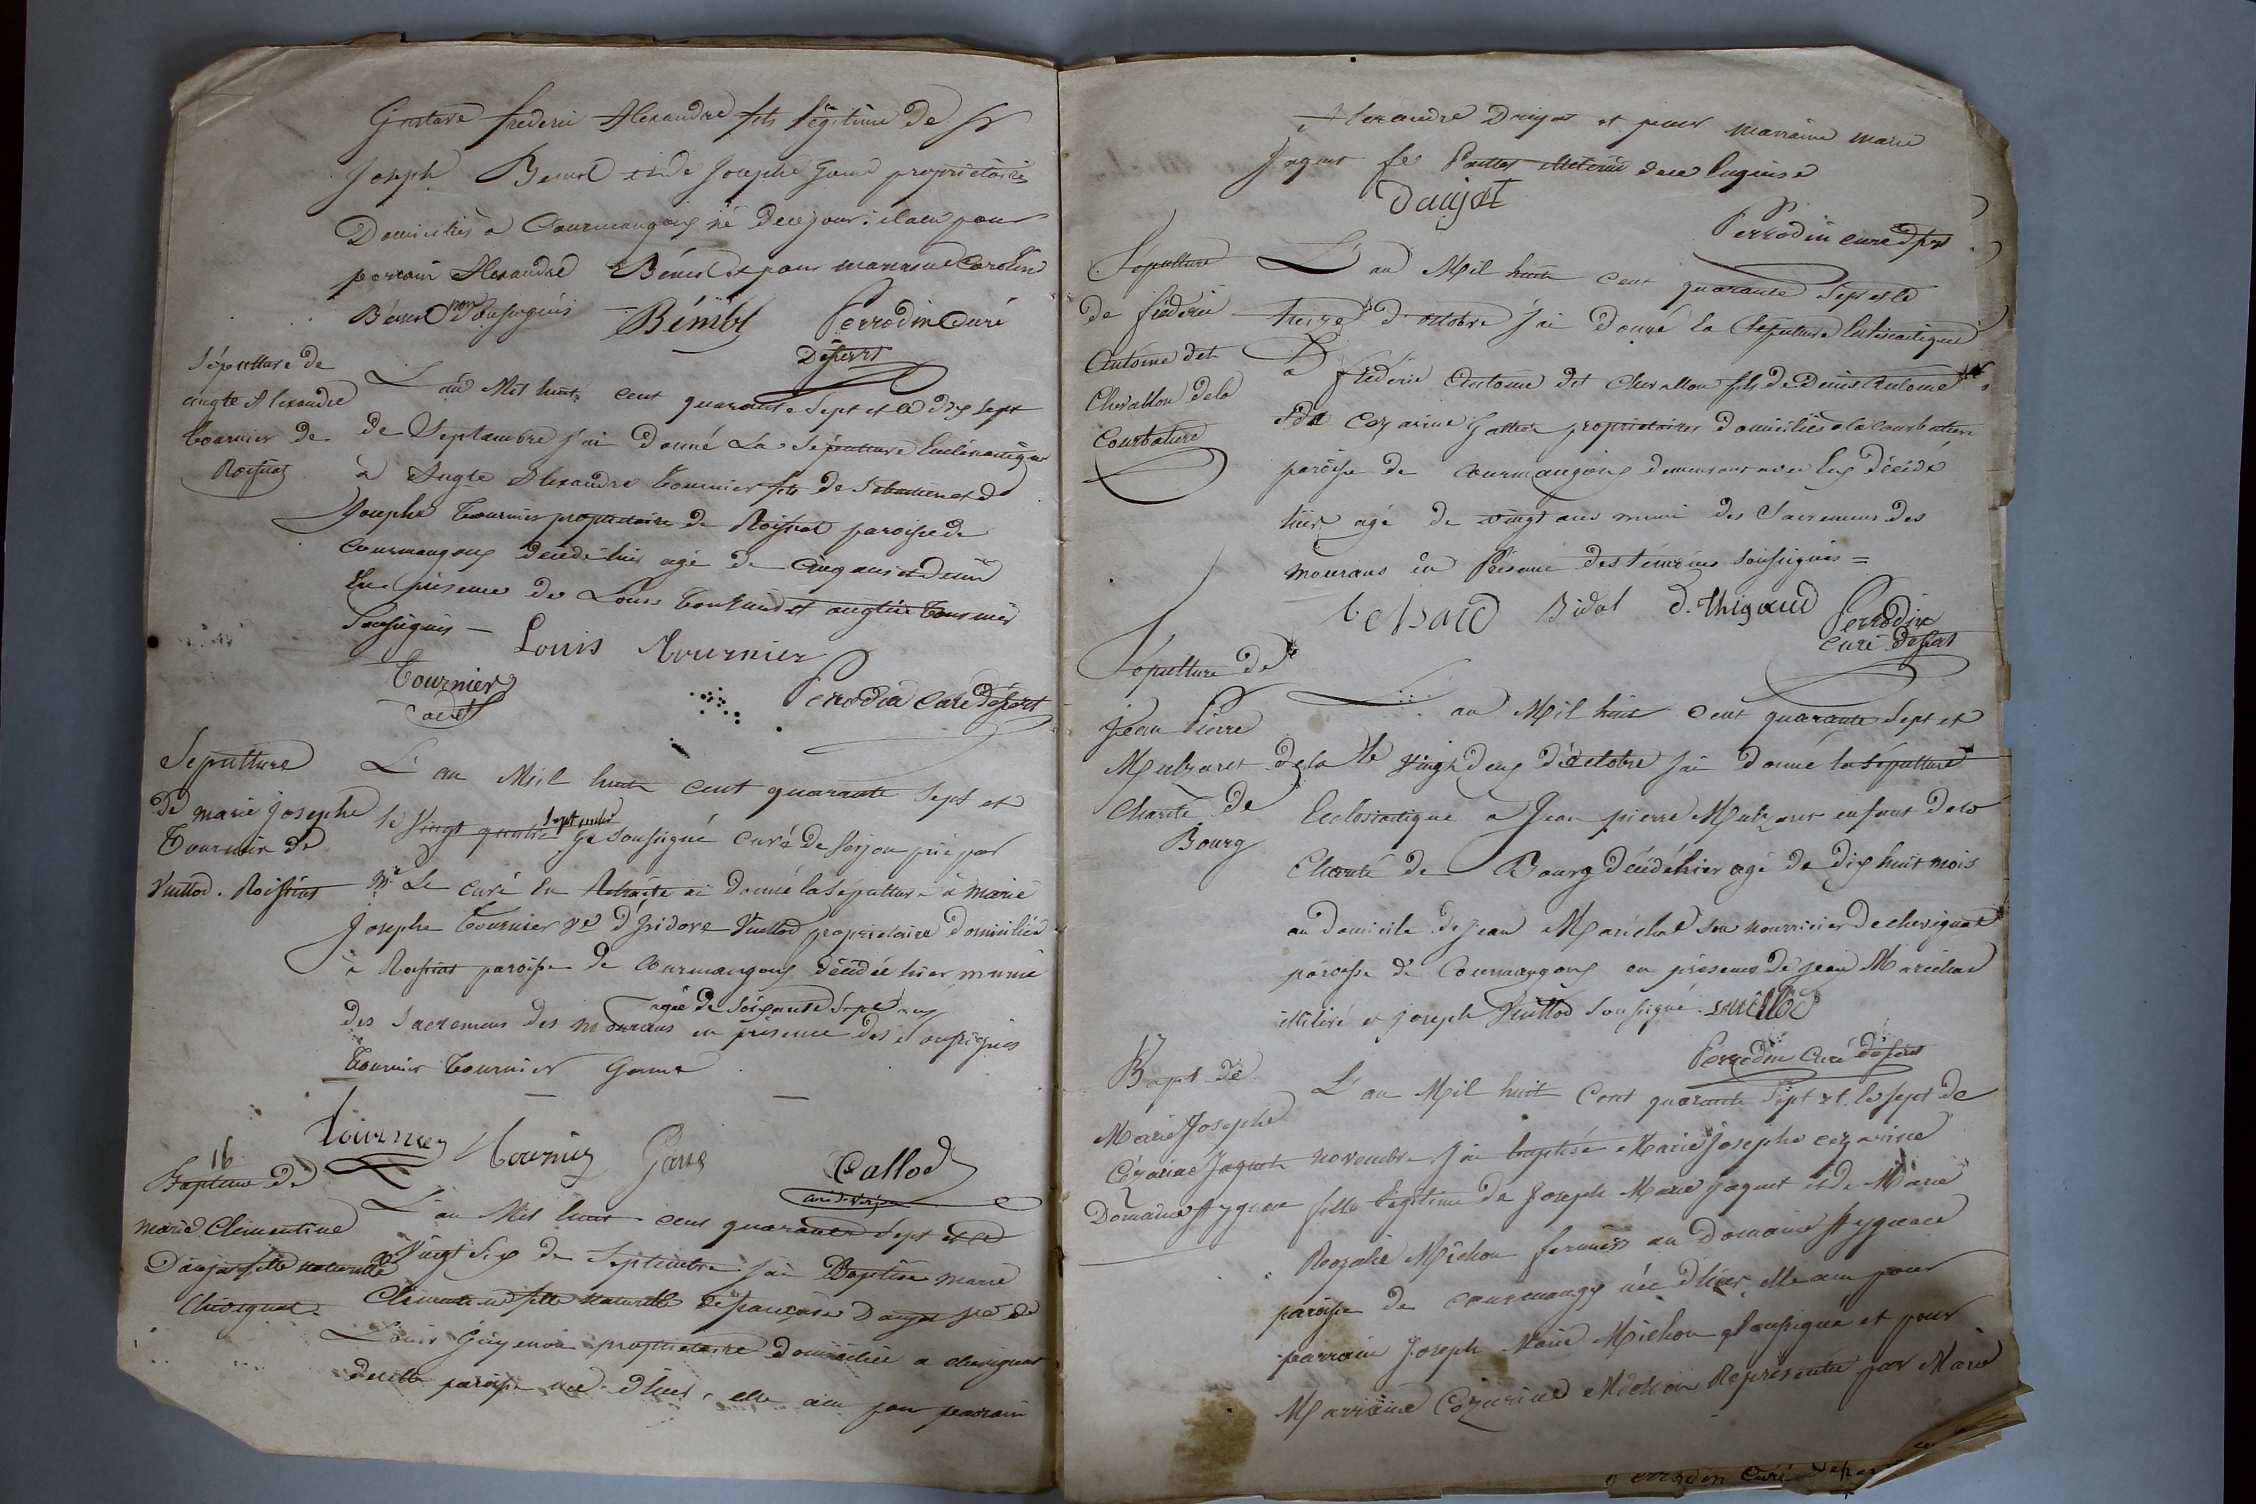 Gustave frederic Alexandre fils légitime de Sr
Joseph Benol et de Josephe Gand propriétaires
Domiciliés a Courmangoux né de ce jour: il a eu pour
parrain Alexandre Bénol et pour marraine Caroline
Bénol non soussignés
Perrodin Curé
Desserv
Sépulture de
augte Alexandre
Tournier de
Roissiat
L'an Mil huit cent quarante Sept et le dix Sept
de Septambre j'ai donné La Sépulture Ecclésiastique
à Augte Alexandre Tournier fils de Sebastien et de
Josephe Tournier propriétaire de Roissiat paroisse de
Courmangoux décédé hier agé de Cinq ans et demi
En présence de Louis Tournier et augtin Tournier
Soussignés —
Louis Tournier
Tournier
Perrodin Curé Dessert
Sépulture
de marie josephe
Tournier de
Vuillod. Roissiat
L'an Mil huit cent quarante Sept et
le Vingt quatre septembre Je soussigné Curé de Verjon prié par
Mr Le Curé En Retraite ai donné la Sépulture à marie
Josephe Tournier ve d'Isidore Vuillod propriétaire domiciliée
à Roissiat paroisse de Courmangoux décédée hier munie
agée de soixante sept ans
des Sacremens des mourans en présence des soussignés
Tournier Tournier Gome
Tournier Tournier
Callod
curé de Verjon
16
Baptême de
marie Clémentine
Daujat fille naturelle
Chevignat
L'an Mil huit cent quarante Sept et le
Vingt Six de Septembre j'ai Baptisé marie
Clémentine fille naturelle de françoise Daujat ve de
Louis Guyenon propriétaire domiciliée a chevignat
de cette paroisse née d'hier, elle a eu pour parrain
Alexandre Daujat et pour marraine marie
Jaquet fe Paillot illetérée de ce enquise
Daujat
Perrodin curé dsst
Sépulture
de fréderic
Antoine det
Chevallon de la
Courbature
L'an Mil huit cent quarante Sept et le
treize d'octobre j'ai donné la Sépulture Ecclésiastique
à fréderic Antoine dit Chevallon fils de Denis Antoine
et de Cezarine propriétaires domiciliés a la Courbature
paroisse de Courmangoux demeurant avec Eux décédé
hier agé de vingt ans muni des Sacremens des
mourans en Présence des témoins soussignés =
Bidal d. Thigaud Perrodin
Curé Dessert
Sépulture de
Jean Pierre
de la
Charité de
Bourg
L'an Mil huit cent quarante Sept et
le vingt deux d'octobre j'ai donné la Sépulture
Ecclésiastique a Jean pierre enfant de la
Charité de Bourg décédé hier agé de dix huit mois
au domicile de Jean Maréchal son nourricier de chevignat
paroisse de Courmangoux en présence de jean Maréchal
illitéré et joseph Vuillod soussigné. vuillod
Perrodin Curé dessert
17
Bapt de
Marie Josephe
Cézarine Jaquet
Domaine
L'an Mil huit Cent quarante Sept et le sept de
novembre J'ai baptisé Marie Josephe cezarine
fille légitime de Joseph Marie Jaquet et de Marie
Rozalie Michon fermiers au Domaine
paroisse de courmangx née d'hier elle a eu pour
parrain Joseph Marie Michon soussigné et pour
Marraine Cézarine Michon Représentée par Marie
Perrodin Curé